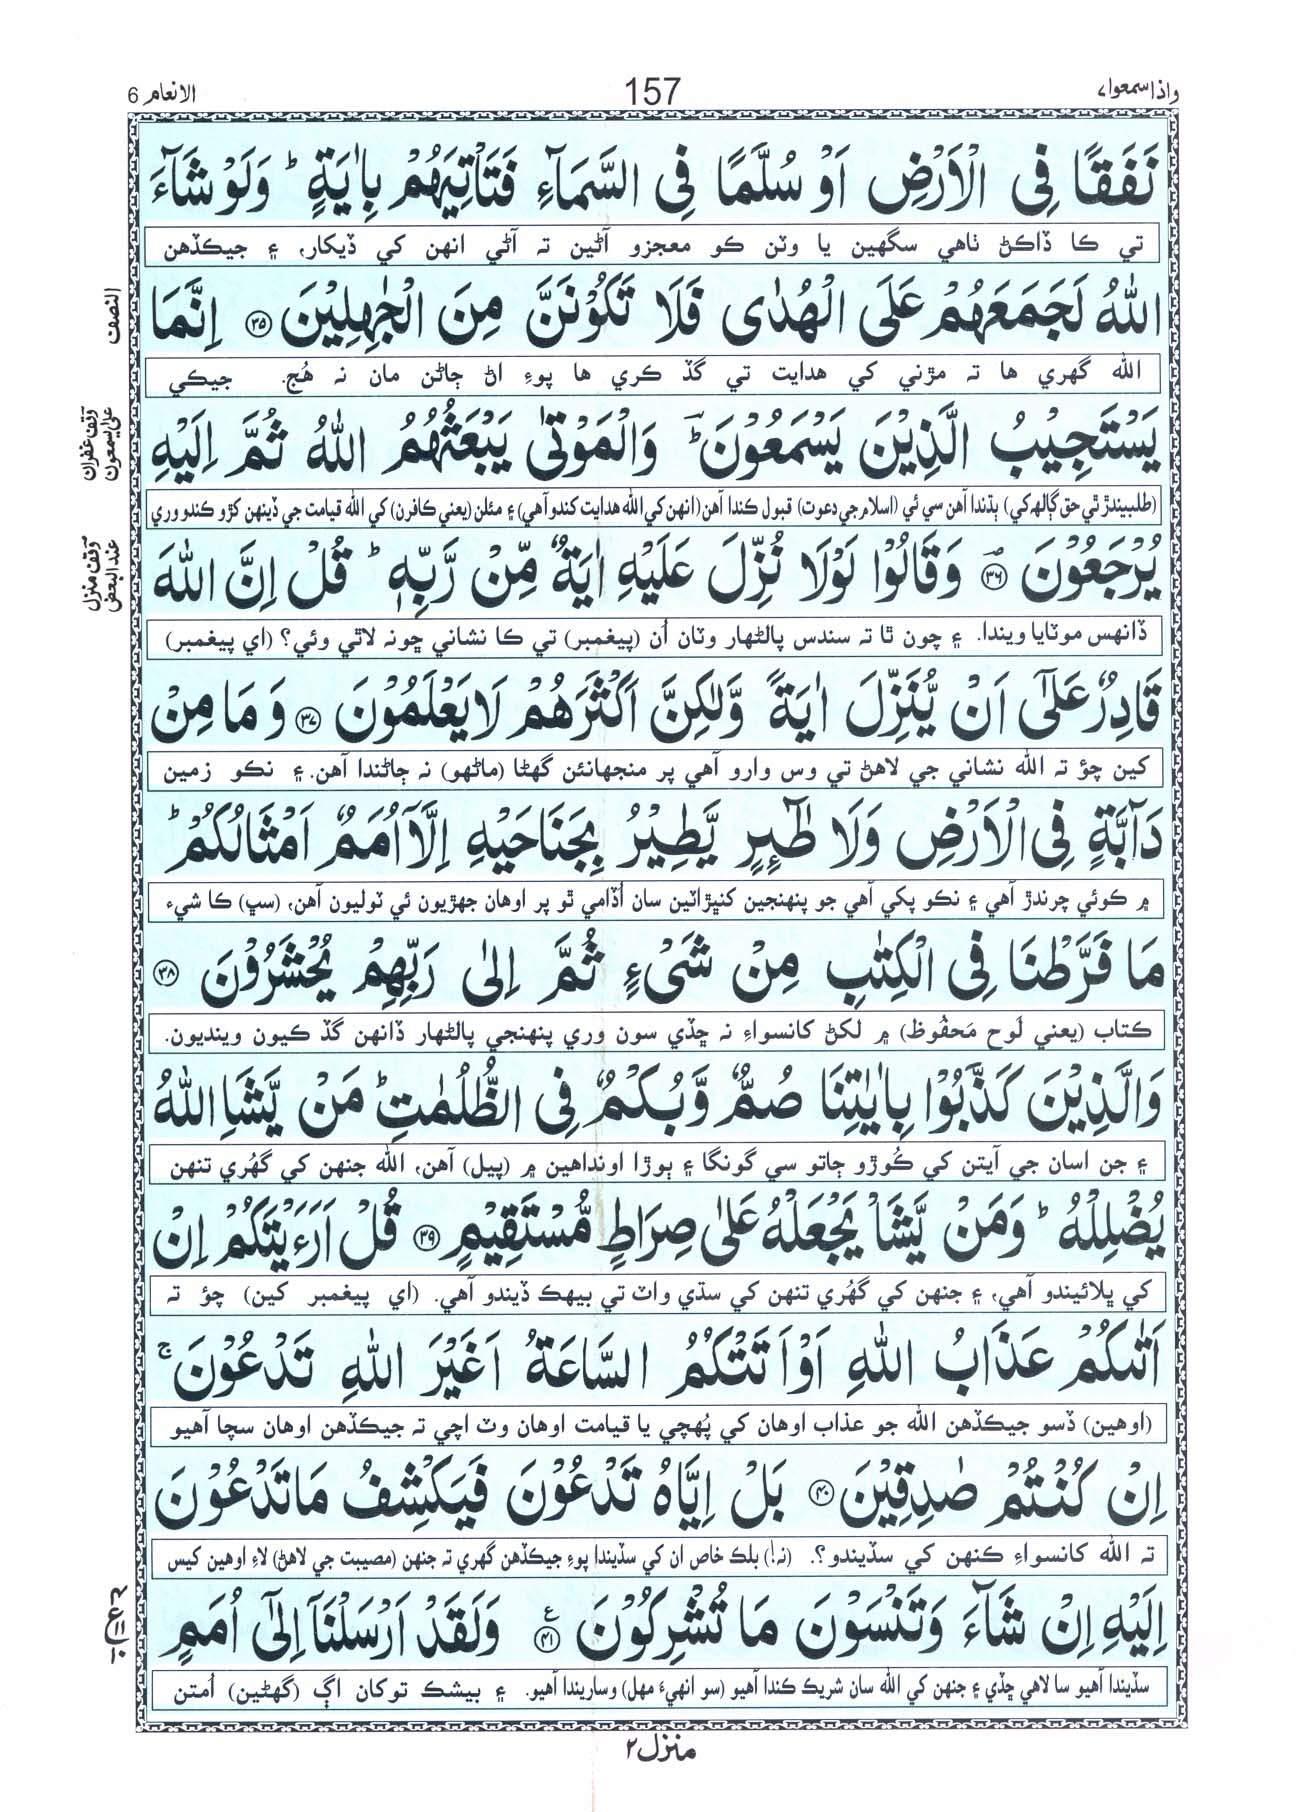 واذاسمعوا۷
157
الانعام 6
نَفَقًا فِی الْاَرْضِ اَوْ سُلَّمًا فِی السَّمَآءِ فَتَاْتِیَهُمْ بِاٰیَةٍ ؕ وَلَوْ شَآءَ
تي ڪا ڏاڪڻ ٺاهي سگهين يا وٽن ڪو معجزو آڻين ته آڻي انهن کي ڏيکار، ۽ جيڪڏهن
اللّٰهُ لَجَمَعَهُمْ عَلَی الْهُدٰی فَلَا تَكُوْنَنَّ مِنَ الْجٰهِلِیْنَ ﴿۳۵﴾ اِنَّمَا
النصف
الله گهري ها ته مڙني کي هدايت تي گڏ ڪري ها پوءِ اڻ ڄاڻن مان نہ هُج. جيڪي
یَسْتَجِیْبُ الَّذِیْنَ یَسْمَعُوْنَ ؔؕ وَالْمَوْتٰی یَبْعَثُهُمُ اللّٰهُ ثُمَّ اِلَیْهِ
وقف غفران
علی یسمعون
(طلبيندڙ ٿي حق ڳالهه کي) ٻڌندا آهن سي ئي (اسلام جي دعوت) قبول ڪندا آهن (انهن کي الله هدايت ڪندو آهي) ۽ مئلن (يعني ڪافرن) کي الله قيامت جي ڏينهن کڙو ڪندو وري
یُرْجَعُوْنَ ﴿۳۶﴾ؔ وَقَالُوْا لَوْلَا نُزِّلَ عَلَیْهِ اٰیَةٌ مِّنْ رَّبِّهٖ ؕ قُلْ اِنَّ اللّٰهَ
وقف منزل
عند البعض
ڏانهس موٽايا ويندا. ۽ چون ٿا ته سندس پالڻهار وٽان اُن (پيغمبر) تي ڪا نشاني ڇونہ لاٿي وئي؟ (اي پيغمبر)
قَادِرٌ عَلٰۤی اَنْ یُّنَزِّلَ اٰیَةً وَّلٰكِنَّ اَكْثَرَهُمْ لَا یَعْلَمُوْنَ ﴿۳۷﴾ وَمَا مِنْ
کين چؤ ته الله نشاني جي لاهڻ تي وس وارو آهي پر منجهانئن گهڻا (ماڻهو) نہ ڄاڻندا آهن. ۽ نڪو زمين
دَآبَّةٍ فِی الْاَرْضِ وَلَا طٰٓئِرٍ یَّطِیْرُ بِجَنَاحَیْهِ اِلَّاۤ اُمَمٌ اَمْثَالُكُمْ ؕ
۾ ڪوئي چرندڙ آهي ۽ نڪو پکي آهي جو پنهنجين کنڀڙاٽين سان اُڏامي ٿو پر اوهان جهڙيون ئي ٽوليون آهن، (سڀ) ڪا شيء
مَا فَرَّطْنَا فِی الْكِتٰبِ مِنْ شَیْءٍ ثُمَّ اِلٰی رَبِّهِمْ یُحْشَرُوْنَ ﴿۳۸﴾
ڪتاب (يعني لَوح مَحفُوظ) ۾ لکڻ کانسواءِ نہ ڇڏي سون وري پنهنجي پالڻهار ڏانهن گڏ ڪيون وينديون.
وَالَّذِیْنَ كَذَّبُوْا بِاٰیٰتِنَا صُمٌّ وَّبُكْمٌ فِی الظُّلُمٰتِ ؕ مَنْ یَّشَاِ اللّٰهُ
۽ جن اسان جي آيتن کي ڪُوڙو ڄاتو سي گونگا ۽ ٻوڙا اونداهين ۾ (پيل) آهن، الله جنهن کي گهُري تنهن
یُضْلِلْهُ ؕ وَمَنْ یَّشَاْ یَجْعَلْهُ عَلٰی صِرَاطٍ مُّسْتَقِیْمٍ ﴿۳۹﴾ قُلْ اَرَءَیْتَكُمْ اِنْ
کي ڀلائيندو آهي، ۽ جنهن کي گهُري تنهن کي سڌي واٽ تي بيهڪ ڏيندو آهي. (اي پيغمبر کين) چؤ ته
اَتٰىكُمْ عَذَابُ اللّٰهِ اَوْ اَتَتْكُمُ السَّاعَةُ اَغَیْرَ اللّٰهِ تَدْعُوْنَ ۚ
(اوهين) ڏسو جيڪڏهن الله جو عذاب اوهان کي پُهچي يا قيامت اوهان وٽ اچي ته جيڪڏهن اوهان سچا آهيو
اِنْ كُنْتُمْ صٰدِقِیْنَ ﴿۴۰﴾ بَلْ اِیَّاهُ تَدْعُوْنَ فَیَكْشِفُ مَا تَدْعُوْنَ
ته الله کانسواءِ ڪنهن کي سڏيندو؟. (نہ!) بلڪ خاص ان کي سڏيندا پوءِ جيڪڏهن گهري ته جنهن (مصيبت جي لاهڻ) لاءِ اوهين کيس
اِلَیْهِ اِنْ شَآءَ وَتَنْسَوْنَ مَا تُشْرِكُوْنَ ﴿۴۱﴾ع وَلَقَدْ اَرْسَلْنَاۤ اِلٰۤی اُمَمٍ
سڏيندا آهيو سا لاهي ڇڏي ۽ جنهن کي الله سان شريڪ ڪندا آهيو (سو انهيءَ مهل) وساريندا آهيو. ۽ بيشڪ توکان اڳ (گهڻين) اُمتن
منزل۲